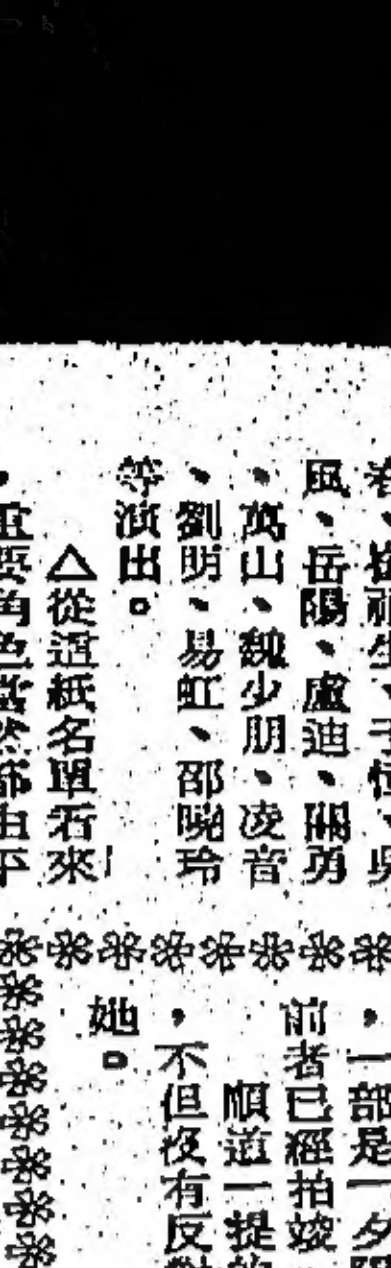 風、岳陽、盧迪、關勇
、萬山、魏少朋、凌音
、劉明、易虹、邵曉玲
等演出。
△從這紙名單看來
，重要角色當然都由平
，一部是一夕陽
前者已經拍竣
順道一提的
，不但沒有反對
她。